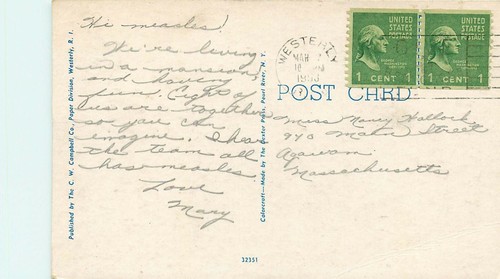 Hi measles!
We're living
in a mansion
and having
fun. Eight of
us are together
so you can
imagine. I hear
the team all
has measles
Love
Mary
WESTERLY
MAR
1953
R.I.
UNITED STATES POSTAGE
1 CENT 1
UNITED STATES POSTAGE
1 CENT 1
POST CARD
Miss Nancy Hallock
940 Main Street
Agawam
Massachusetts
Published by The C. W. Campbell Co., Paper Division, Westerly, R. I.
Colorcraft—Made by The Dexter Press, Pearl River, N. Y.
32551